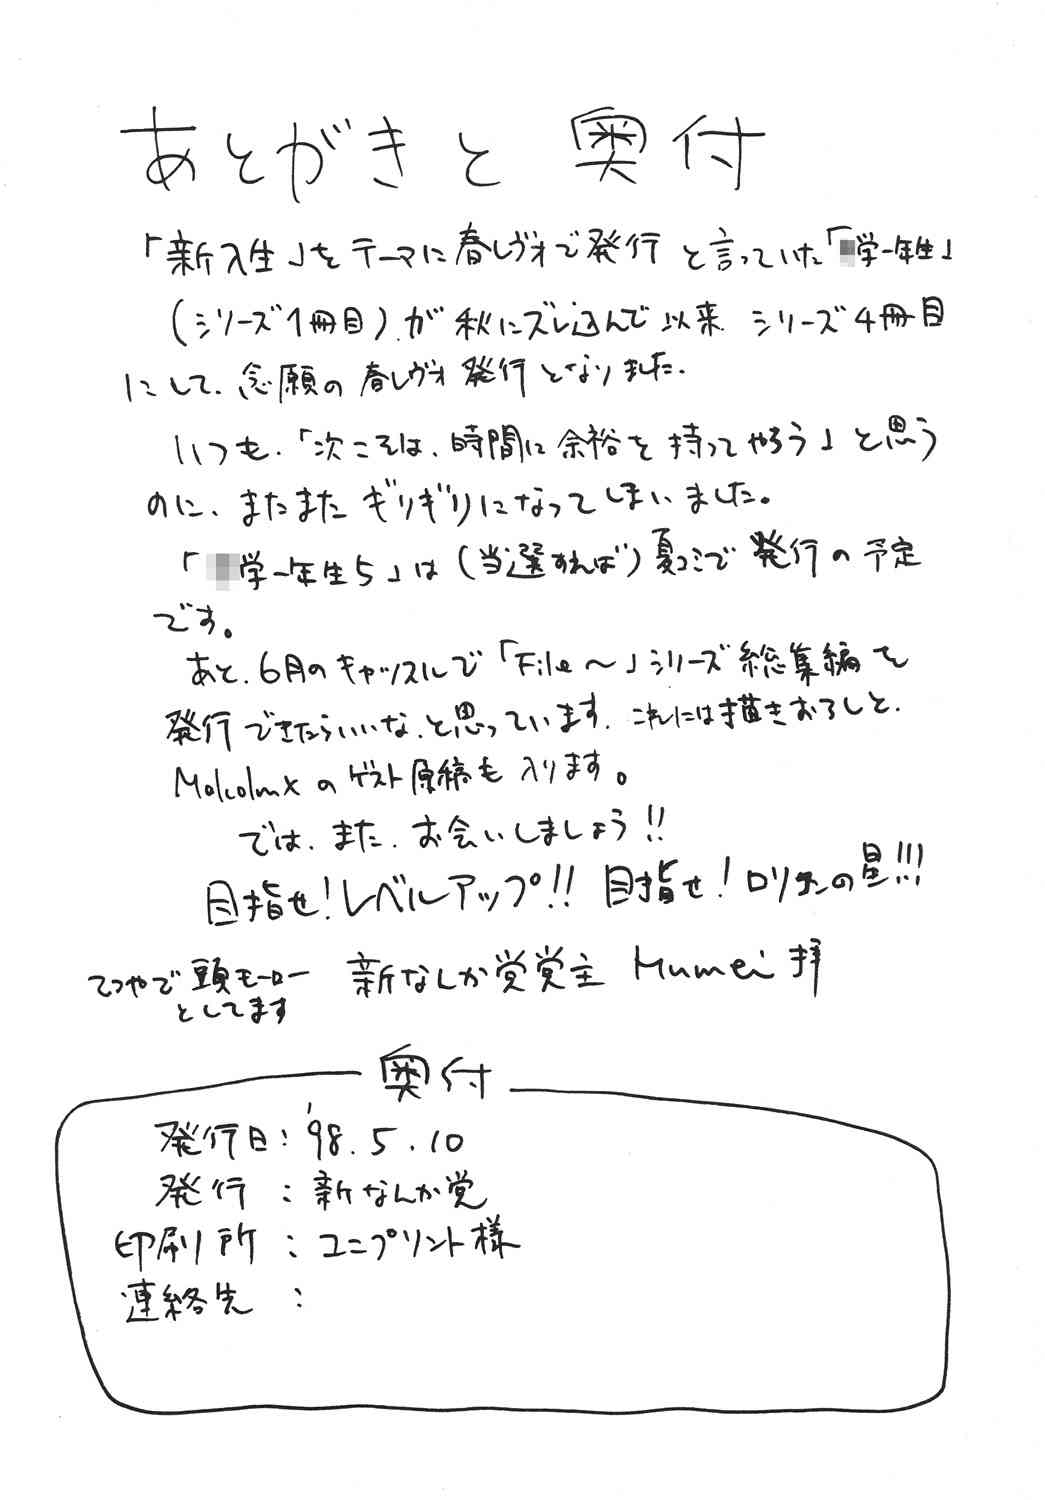 あとがきと奥付
「新入生」をテーマに春レヴォで発行と言っていた「学一年生」
(シリーズ1冊目)が秋にズレ込んで以来、シリーズ4冊目
にして、念願の春レヴォ発行となりました。
いつも、「次こそは、時間に余裕を持ってやろう」と思う
のに、またまたギリギリになってしまいました。
「学一年生5」は(当選すれば)夏コミで発行の予定
です。
あと、6月のキャッスルで「File〜」シリーズ総集編を
発行できたらいいな、と思っています。これには描きおろしと、
Molcolmxのゲスト原稿も入ります。
では、また、お会いしましょう!!
目指せ!レベルアップ!! 目指せ!ロリチンの星!!!
てつやで頭モーロー
としてます
新なんか党党主 Mumei 拝
奥付
発行日:'98.5.10
発行:新なんか党
印刷所:ユニプリント様
連絡先: